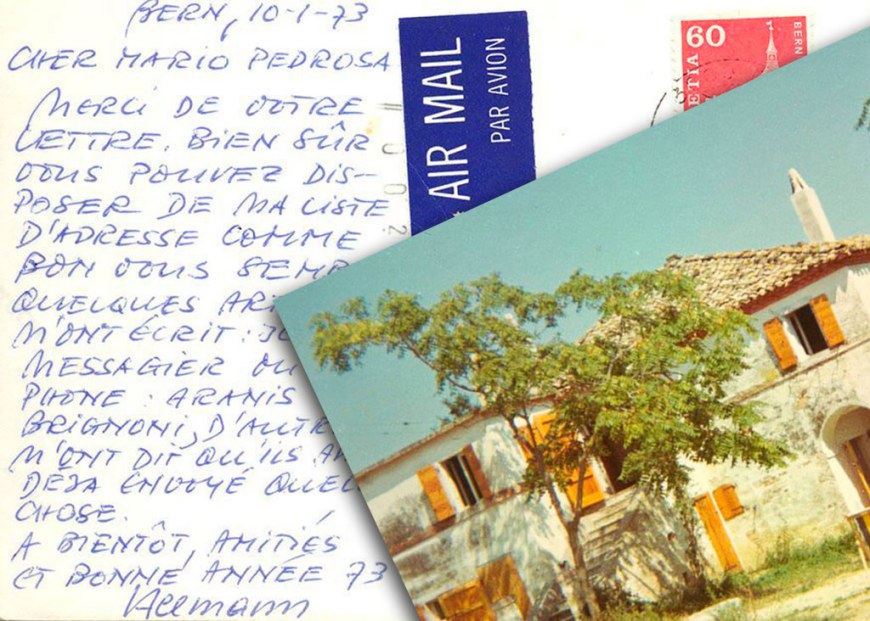 BERN, 10-1-73
CHER MARIO PEDROSA
MERCI DE VOTRE
LETTRE. BIEN SÛR
VOUS POUVEZ DIS-
POSER DE MA LISTE
D'ADRESSE COMME
BON VOUS SEMB
QUELQUES
M'ONT ÉCRIT :
MESSAGIER OU
PHONE : ARANIS
BRIGNONI, D'AUTR
M'ONT DIT QU'ILS
DEJA ENVOYÉ QUEL
CHOSE.
A BIENTÔT, AMITIÉS
ET BONNE ANNEE 73
AIR MAIL
PAR AVION
60
BERN
ETIA